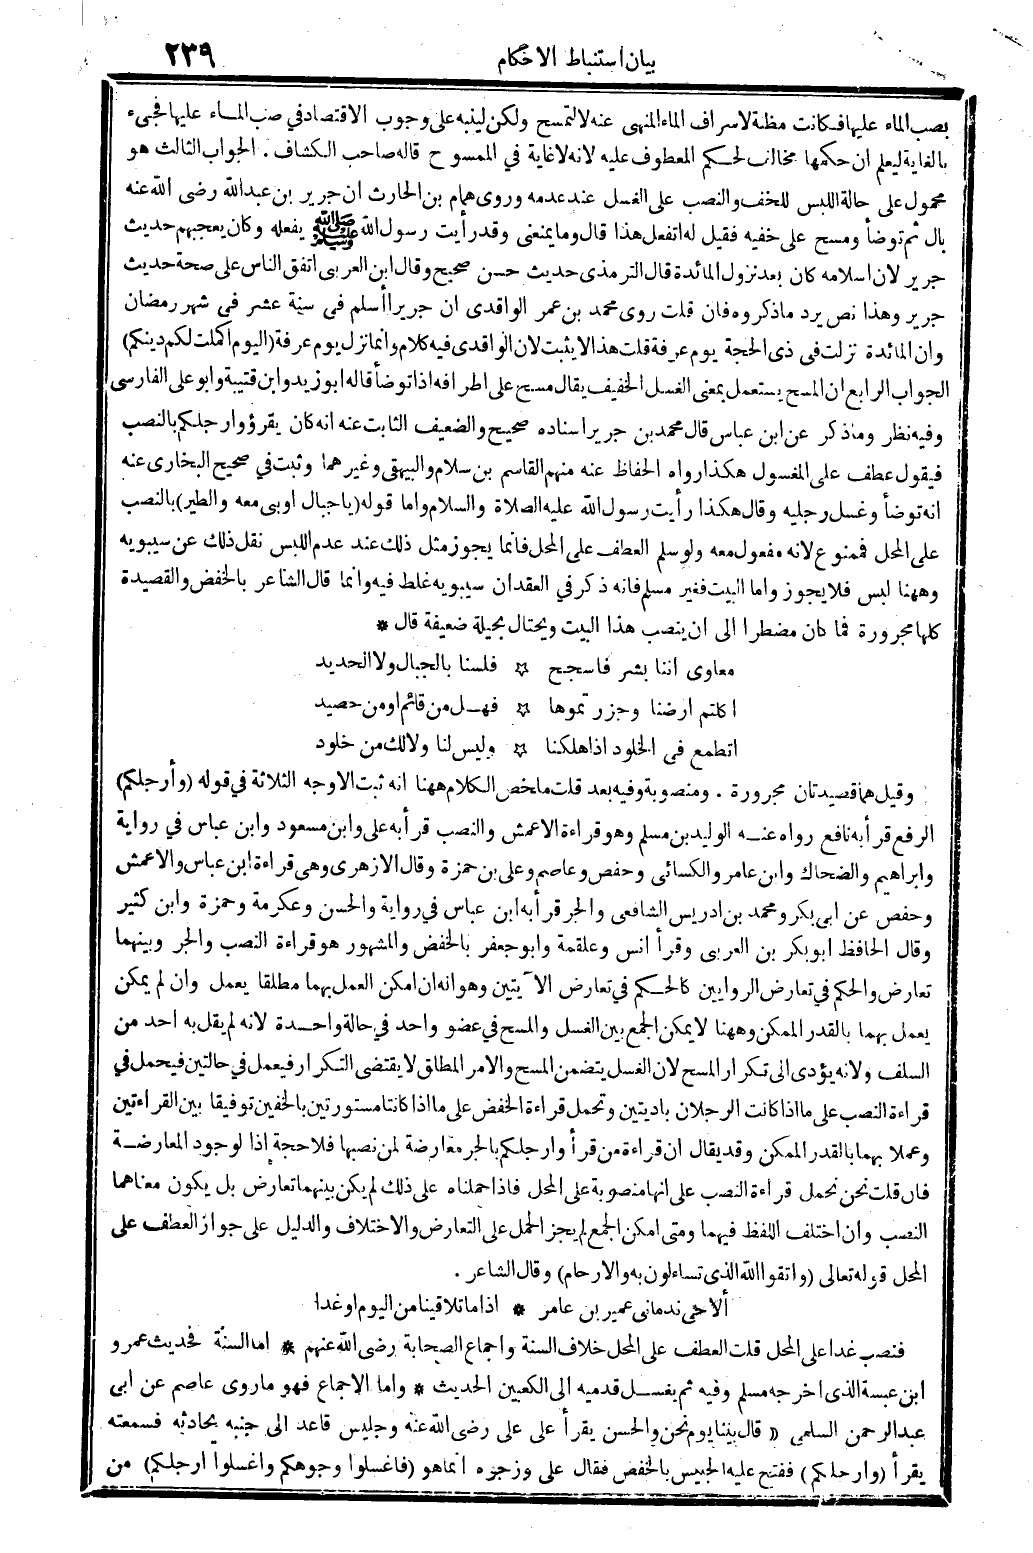 بيان استنباط الاحكام ٢٣٩
بصب الماء عليها فكانت مظنة لاسراف الماء المنهى عنه لا لتمسح ولكن لينبه على وجوب الاقتصاد في صب المـاء عليها فجىء
بالغاية ليعلم ان حكمها مخالف لحـكم المعطوف عليه لانه لا غاية في الممسوح قاله صاحب الكشاف . الجواب الثالث هو
محمول على حالة اللبس للخف والنصب على الغسل عند عدمه وروى همام بن الحارث ان جرير بن عبد الله رضى الله عنه
بال ثم توضأ ومسح على خفيه فقيل له اتفعل هذا قال وما يمنعنى وقد رأيت رسول الله ﷺ يفعله وكان يعجبهم حديث
جرير لان اسلامه كان بعد نزول المائدة قال الترمذى حديث حسن صحيح وقال ابن العربى اتفق الناس على صحة حديث
جرير وهذا نص يرد ما ذكروه فان قلت روى محمد بن عمر الواقدى ان جريرا أسلم فى سنة عشر فى شهر رمضان
وان المائدة نزلت فى ذى الحجة يوم عرفة قلت هذا لا يثبت لان الواقدى فيه كلام وانما نزل يوم عرفة (اليوم اكملت لكم دينكم)
الجواب الرابع ان المسح يستعمل بمعنى الغسل الخفيف يقال مسح على اطرافه اذا توضأ قاله ابو زيد وابن قتيبة وابو على الفارسى
وفيه نظر وما ذكر عن ابن عباس قال محمد بن جرير اسناده صحيح والضعيف الثابت عنه انه كان يقرؤ وارجلكم بالنصب
فيقول عطف على المغسول هكذا رواه الحفاظ عنه منهم القاسم بن سلام والبيهقى وغيرهما وثبت في صحيح البخارى عنه
انه توضأ وغسل رجليه وقال هكذا رأيت رسول الله عليه الصلاة والسلام واما قوله (يا جبال اوبى معه والطير) بالنصب
على المحل فممنوع لانه مفعول معه ولو سلم العطف على المحل فانما يجوز مثل ذلك عند عدم اللبس نقل ذلك عن سيبويه
وههنا لبس فلا يجوز واما البيت فغير مسلم فانه ذكر في العقد ان سيبويه غلط فيه وانما قال الشاعر بالخفض والقصيدة
كلها مجرورة فما كان مضطرا الى ان ينصب هذا البيت ويحتال بحيلة ضعيفة قال *
معاوى اننا بشر فاسجح ☆ فلسنا بالجبال ولا الحديد
اكلتم ارضنا وجزرتموها ☆ فهـل من قائم او من حصيد
اتطمع فى الخلود اذا هلكنا ☆ وليس لنا ولا لك من خلود
وقيل هما قصيدتان مجرورة . ومنصوبة وفيه بعد قلت ملخص الـكلام ههنا انه ثبت الاوجه الثلاثة في قوله (وأرجلكم)
الرفع قرأ به نافع رواه عنـه الوليد بن مسلم وهو قراءة الاعمش والنصب قرأ به على وابن مسعود وابن عباس في رواية
وابراهيم والضحاك وابن عامر والكسائى وحفص وعاصم وعلى بن حمزة وقال الازهرى وهى قراءة ابن عباس والاعمش
وحفص عن ابى بكر ومحمد بن ادريس الشافعى والجر قرأ به ابن عباس في رواية والحسن وعكرمة وحمزة وابن كثير
وقال الحافظ ابو بكر بن العربى وقرأ انس وعلقمة وابو جعفر بالخفض والمشهور هو قراءة النصب والجر وبينهما
تعارض والحكم في تعارض الروايين كالحـكم في تعارض الآيتين وهو انه ان امكن العمل بهما مطلقا يعمل وان لم يمكن
يعمل بهما بالقدر الممكن وههنا لا يمكن الجمع بين الغسل والمسح في عضو واحد في حالة واحـدة لانه لم يقل به احد من
السلف ولانه يؤدى الى تـكرار المسح لان الغسل يتضمن المسح والامر المطلق لا يقتضى التـكرار فيعمل في حالتين فيحمل في
قراءة النصب على ما اذا كانت الرجلان باديتين وتحمل قراءة الخفض على ما اذا كانتا مستورتين بالخفين توفيقا بين القراءتين
وعملا بهما بالقدر الممكن وقد يقال ان قراءة من قرأ وارجلكم بالجر معارضة لمن نصبها فلا حجة اذا لوجود المعارضـة
فان قلت نحن نحمل قراءة النصب على انها منصوبة على المحل فاذا حملناه على ذلك لم يكن بينهما تعارض بل يكون معناهما
النصب وان اختلف اللفظ فيهما ومتى امكن الجمع لم يجز الحمل على التعارض والاختلاف والدليل على جواز العطف على
المحل قوله تعالى (واتقوا الله الذى تساءلون به والارحام) وقال الشاعر .
ألا حى ندمانى عمير بن عامر * اذا ما تلاقينا من اليوم او غدا
فنصب غدا على المحل قلت العطف على المحل خلاف السنة واجماع الصحابة رضى الله عنهم * اما السنة فحديث عمرو
ابن عبسة الذى اخرجه مسلم وفيه ثم يغسـل قدميه الى الكعبين الحديث * واما الاجماع فهو ما روى عاصم عن ابى
عبد الرحمن السلمى « قال بينا يوم نحن والحسن يقرأ على على رضى الله عنه وجليس قاعد الى جنبه يحادثه فسمعته
يقرأ (وارجلكم) ففتح عليه الجليس بالخفض فقال على وزجره انما هو (فاغسلوا وجوهكم واغسلوا ارجلكم) من